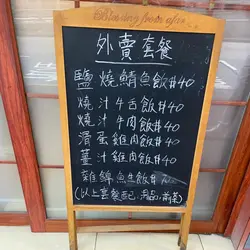 外賣套餐
鹽燒鯖魚飯$40
燒汁牛舌飯$40
燒汁牛肉飯$40
滑蛋雞肉飯$40
薑汁雞肉飯$40
雜錦魚生飯$
(以上套餐配:湯,前菜)